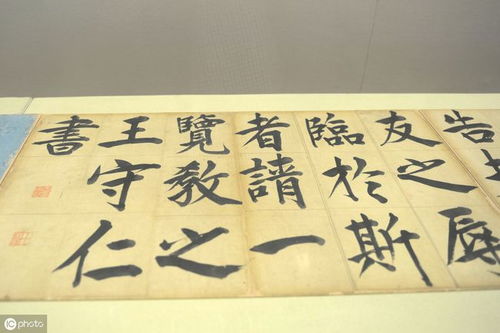 告
友之辱
臨於斯
者請一
覽教之
王守仁
書
iC photo